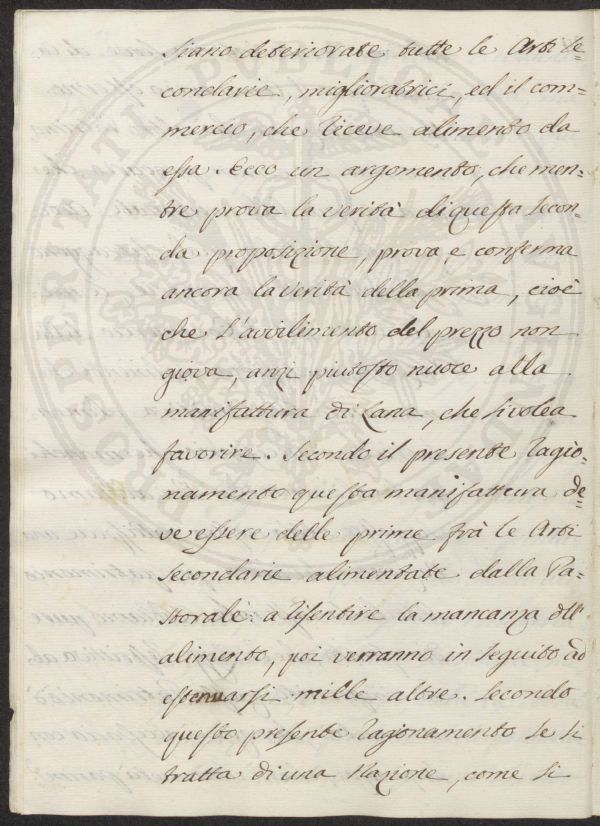 siano deteriorate tutte le Arti se=
condarie, miglioratrici, ed il com=
mercio, che riceve alimento da
essa. Ecco un argomento, che men=
tre prova la verità di questa secon=
da proposizione, prova, e conferma
ancora la verità della prima, cioè
che l'avvilimento del prezzo non
giova, anzi piutosto nuoce alla
manifattura di Lana, che si volea
favorire. Secondo il presente ragio=
namento questa manifattura de=
ve essere delle prime frà le Arti
secondarie alimentate dalla Pa=
storale: a risentire la mancanza dell'
alimento, poi verranno in seguito ad
estenuarsi mille altre. Secondo
questo presente ragionamento se si
tratta di una Nazione, come si